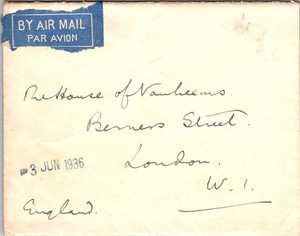 BY AIR MAIL
PAR AVION
The House of Vanheems.
Berners Street.
London.
-3 JUN 1936
W. 1.
England.